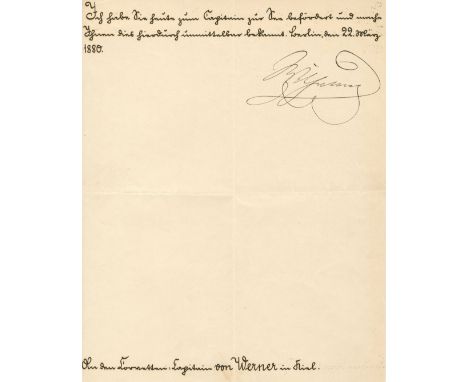 Ich habe Sie heute zum Capitain zur See befördert und mache
Ihnen dies hierdurch unmittelbar bekannt. Berlin, den 22. März
1880.
Wilhelm
An den Corvetten-Capitain von Werner in Kiel.